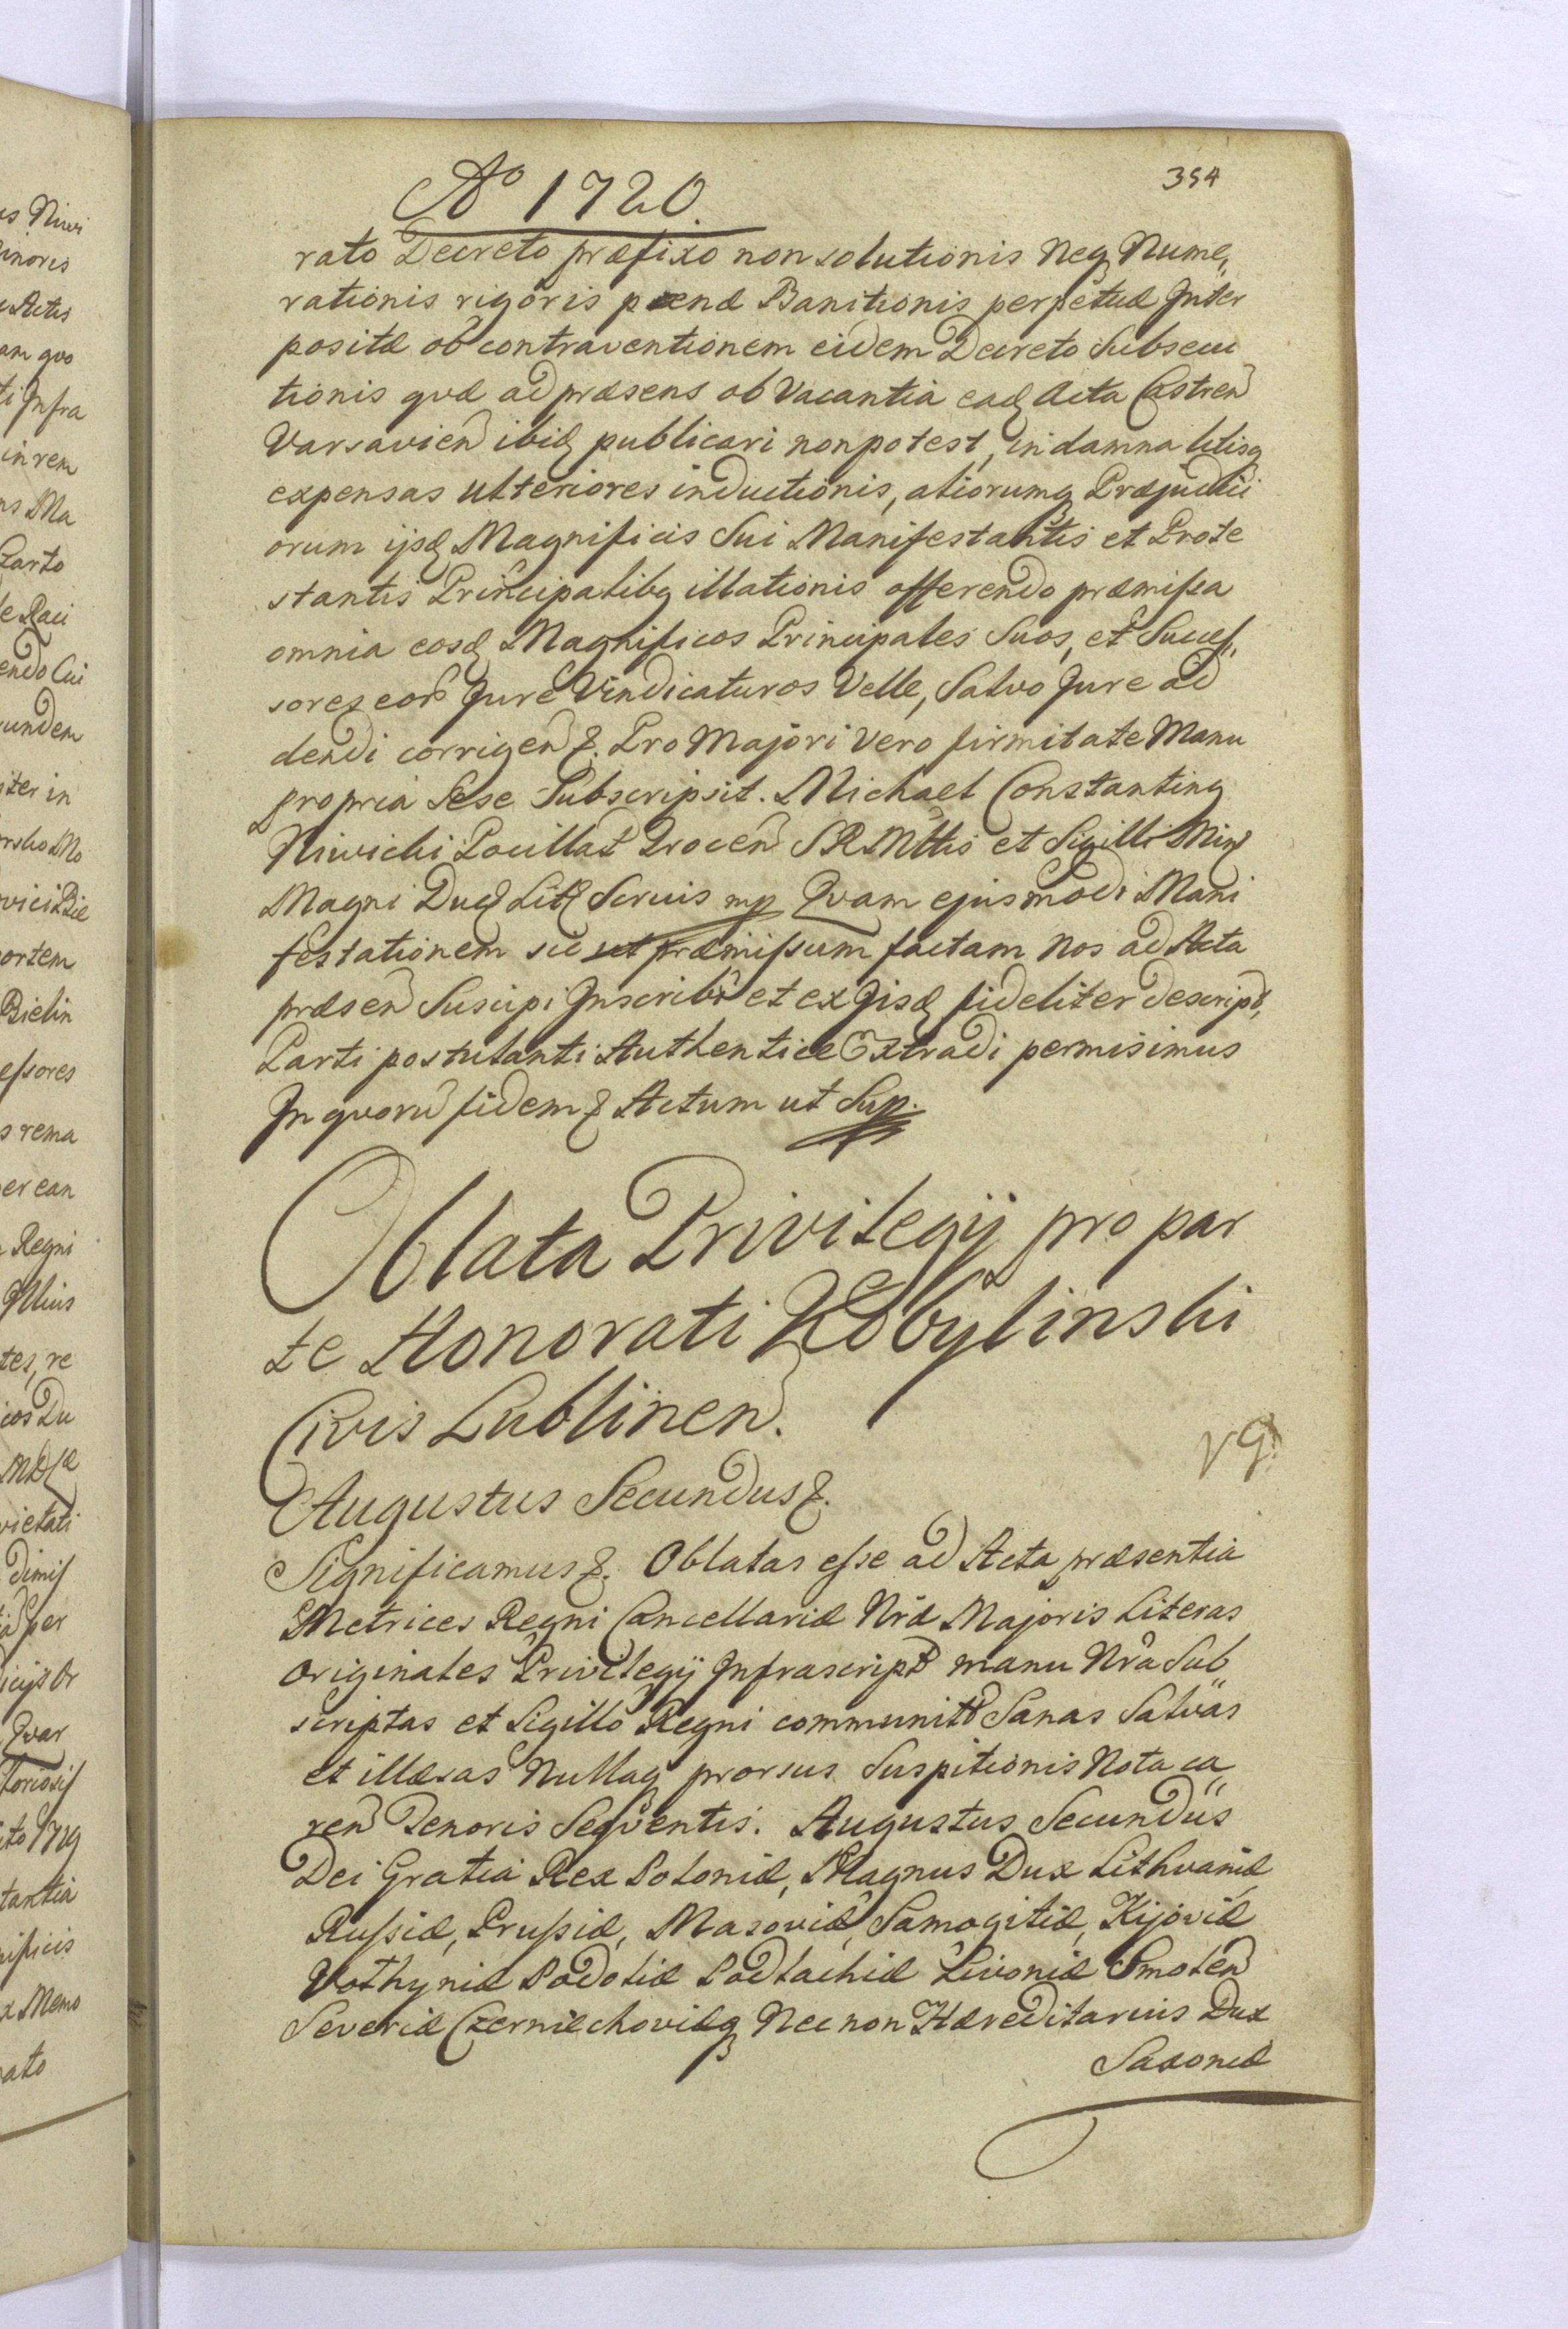 Aº 1720.
354
rato Decreto præfixo non solutionis Neq Nume„
rationis rigoris pœnæ Banitionis perpetuæ Inter
positæ ob contraventionem eidem Decreto Subsecu
tionis qvæ ad præsens ob Vacantia eaq Acta Castren
Varsavien ibiq publicari non potest, in damna litisq
expensas ulteriores inductionis, aliorumq Præjudici
orum ijsq Magnificis Sui Manifestantis et Prote
stantis Principalibq illationis offerendo præmissa
omnia eosq Magnificos Principales Suos, et Succes„
sores eor Jure Vindicaturos Velle, Salvo Jure ad
dendi corrigen &. Pro Majori vero firmitate Manu
propria Sese Subscripsit. Michael Constantinq
Niwicki Pocillat Procen S R Mttis et Sigilli Min
Magni Duc Lit Servis mp Qvam ejusmodi Mani
festationem sic ut præmissum factam Nos ad Acta
præsen Suscipi Inscribi et ex Jisq fideliter descript,
Parti postulanti Authentice Extradi permisimus
In qvoru fidem & Actum ut Sup.
Oblata Privilegij pro par
te Honorati Kobylinski
Civis Lublinen.
vg.
Augustus Secundus &.
Significamus &. Oblatas esse ad Acta præsentia
Metrices Regni Cancellariæ Nræ Majoris Literas
originales Privilegij Infrascript manu Nra Sub
scriptas et Sigillo Regni communit Sanas Salvas
et illæsas Nullaq prorsus Suspitionis Nota ca„
ren Tenoris Seqventis. Augustus Secundus
Dei Gratia Rex Poloniæ, Magnus Dux Lithvaniæ
Russiæ, Prussiæ, Masoviæ, Samogitiæ, Kijoviæ
Volhyniæ Podoliæ Podlachiæ Livoniæ Smolen
Severiæ Czerniechoviæq Nec non Hæreditarius Dux
Saxoniæ